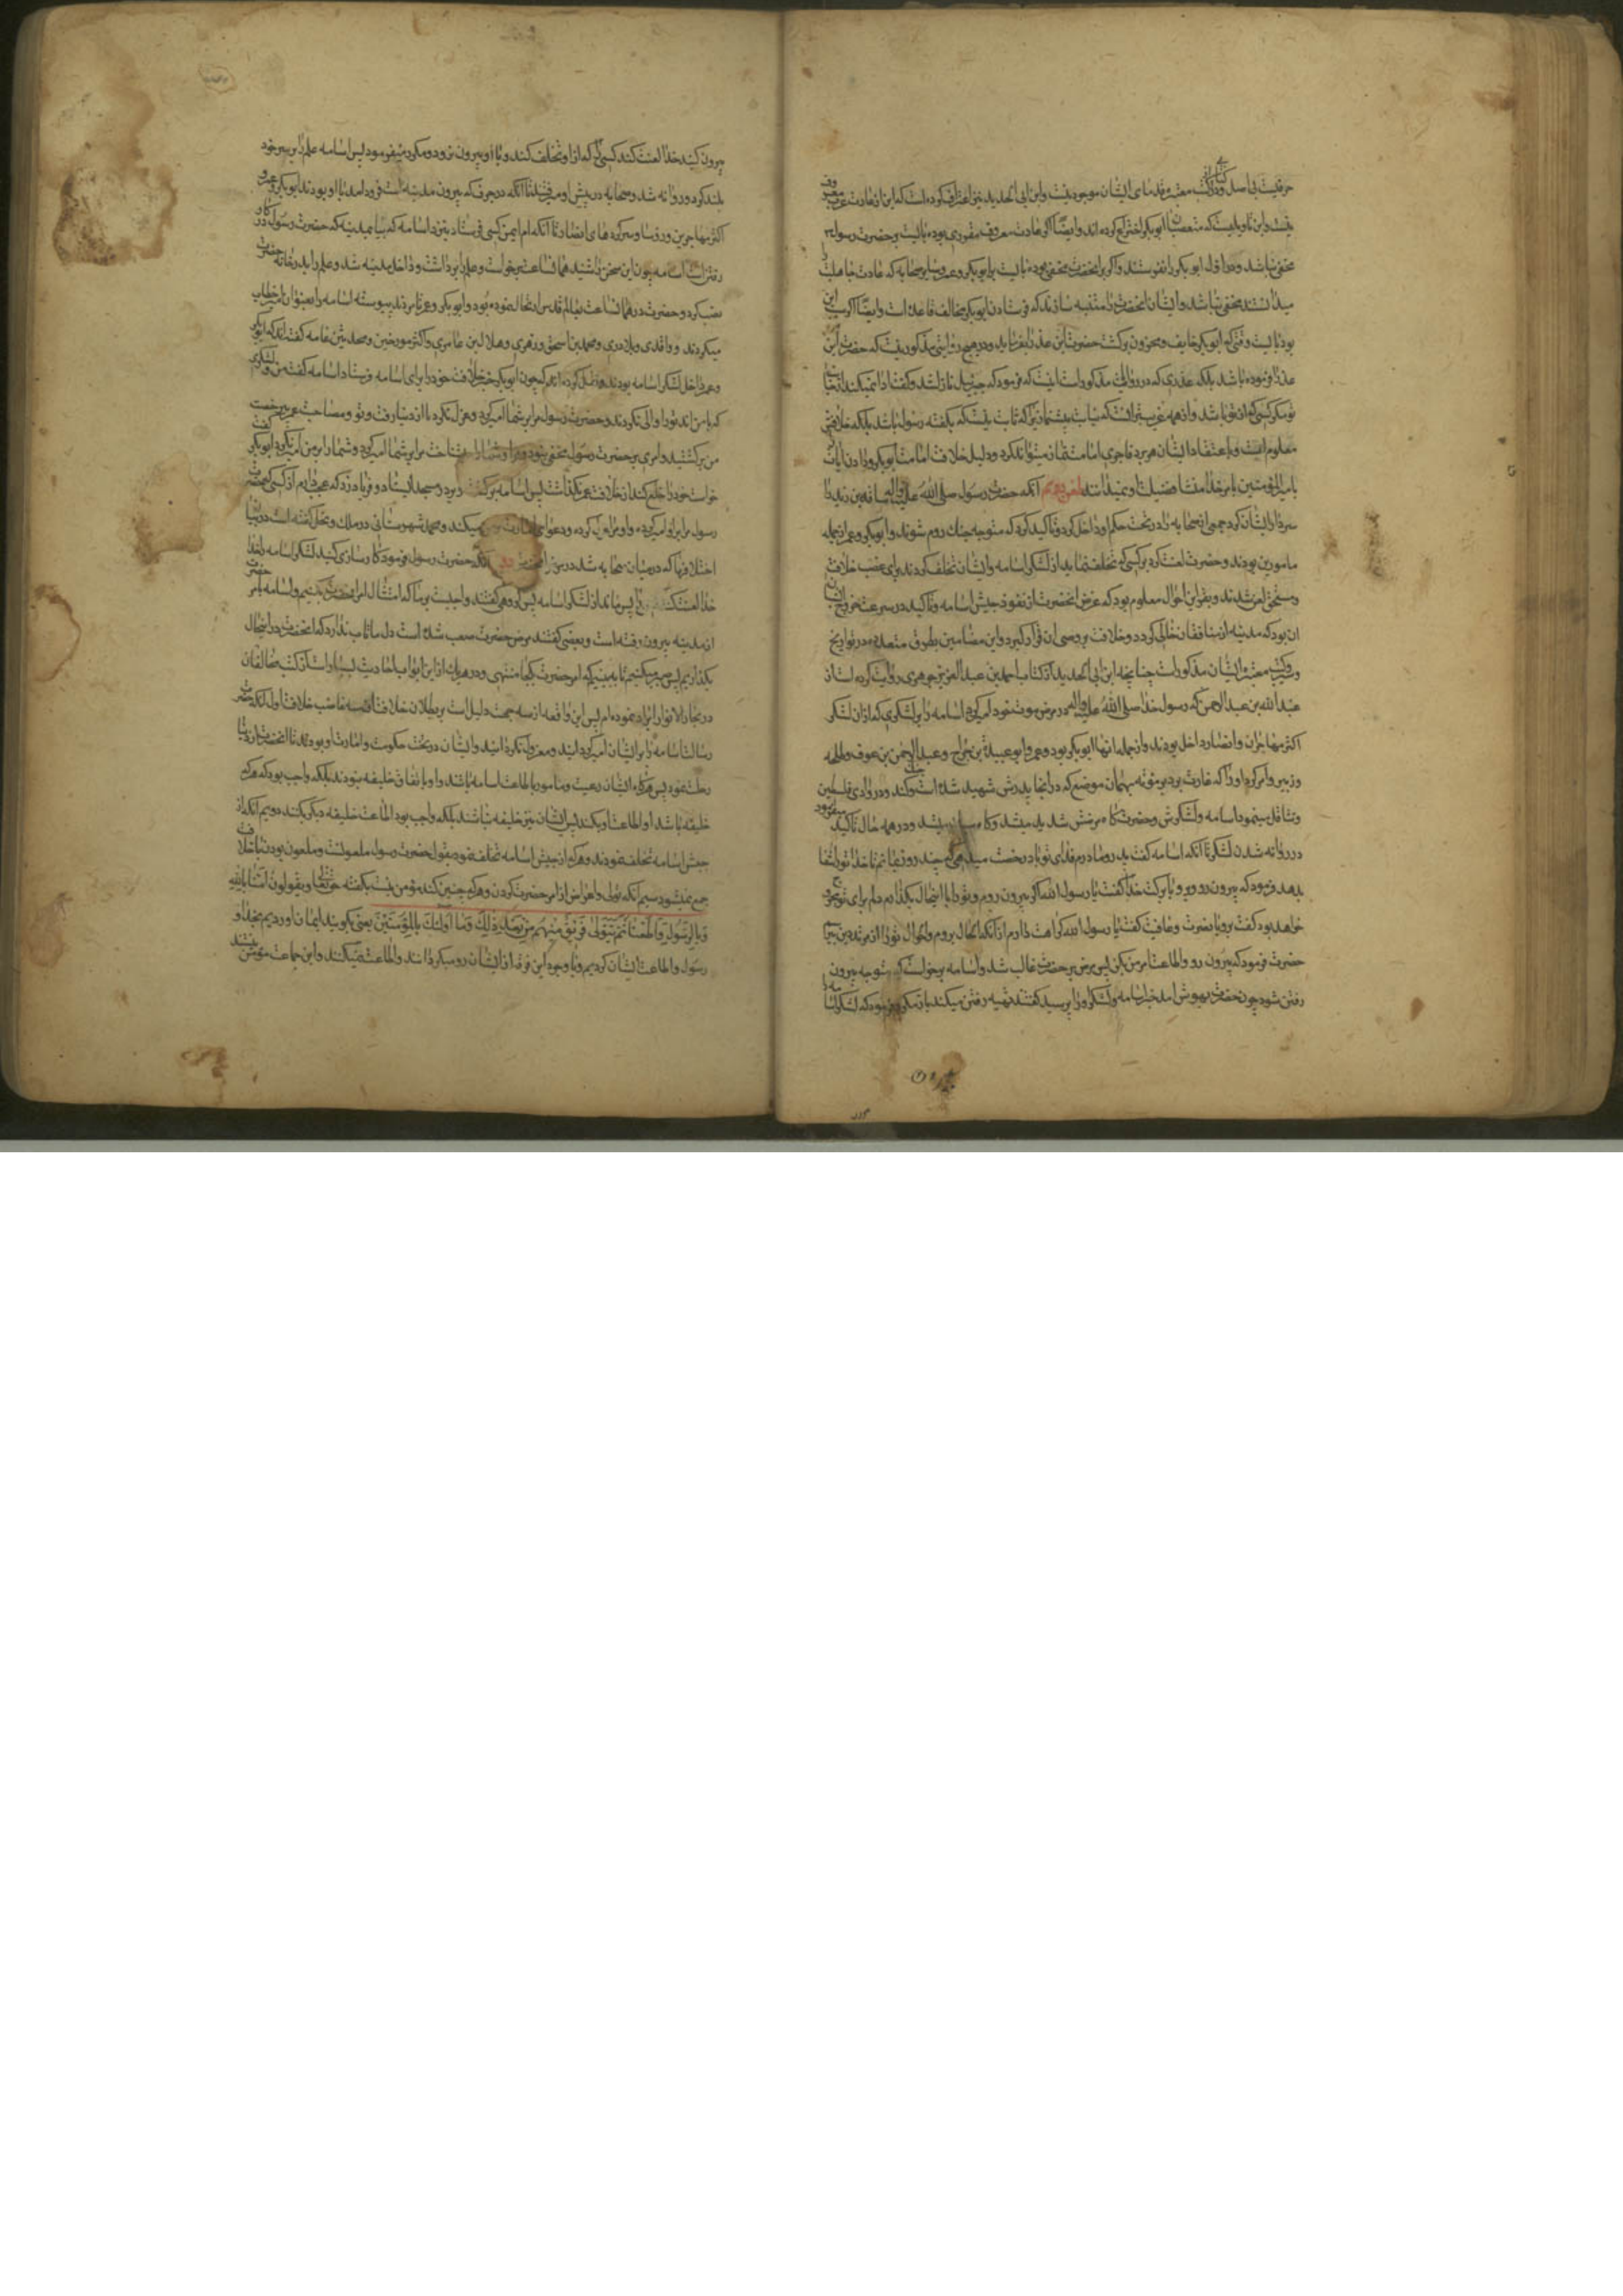 حرفیست بی اصل و در کتب معتبره قدمای ایشان موجود نیست و ابن ابی الحدید نیز اعتراف کرده است که این از عادت عرب معروف
نیست و این تاویلیست که متعصبان ابوبکر اختراع کرده اند و ایضا اگر عادت معروف مقرری بود بایست بر حضرت رسول
مخفی نباشد و در اول ابوبکر را نفرستند و اگر بر آنحضرت مخفی بود بایست بر ابوبکر و عمر و سایر صحابه که عادت جاهلیت را
میدانستند مخفی نباشد و ایشان آنحضرت را متنبه سازند که فرستادن ابوبکر مخالف قاعده است و ایضا اگر سبب این
بود بایست وقتی که ابوبکر خایف و محزون برگشت حضرت این عذر را بفرماید و در هیچ روایتی مذکور نیست که حضرت این
عذر را فرموده باشد بلکه عذری که در روایات مذکور است اینست که فرمود که جبرئیل نازل شد و گفت ادا نمیکند از جانب
تو مگر کسی که از تو باشد
معلوم است و باعتقاد ایشان هر بر و فاجری امامت نماز میتواند کرد و دلیل خلافت و امامت ابوبکر و دادن آیات
بامیر المؤمنین بامر خدا منشا فضیلت او نمیدانند طعن دویم آنکه حضرت رسول صلی الله علیه واله اسامه بن زید را
سردار ایشان کرد و جمعی از صحابه را در تحت حکم او داخل کرد و تاکید کرد که متوجه جنگ روم شوند و ابوبکر و عمر از جمله
مامورین بودند و حضرت لعنت کرد بر کسی که تخلف نماید از لشکر اسامه و ایشان تخلف کردند برای غصب خلافت
و مستحق لعن شدند و بقراین احوال معلوم بود که غرض آنحضرت از نفوذ جیش اسامه و تاکید در سرعت خروج ایشان
آن بود که مدینه از منافقان خالی گردد و خلافت بر وصی آن قرار گیرد و این مضامین بطرق متعدده در تواریخ
و کتب معتبره ایشان مذکور است چنانچه ابن ابی الحدید از کتاب احمد بن عبد العزیز جوهری روایت کرده است از
عبد الله بن عبد الرحمن که رسول خدا صلی الله علیه واله در مرض موت خود امیر کرد اسامه را بر لشکری که در آن لشکر
اکثر مهاجران و انصار داخل بودند و از جمله آنها ابوبکر بود و عمر و ابو عبیدة بن جراح و عبد الرحمن بن عوف و طلحه
و زبیر و امر کرد او را که غارت برد بر موته بهمان موضع که در آنجا پدرش شهید شده است و جنگ کند در وادی فلسطین
و تثاقل مینمود اسامه و لشکرش و حضرت گاه مرضش شدید میشد و گاه سبک میشد و در همه حال تاکید میفرمود
در روانه شدن لشکر تا آنکه اسامه گفت پدر و مادرم فدای تو باد رخصت میدهی که چند روز بمانم تا خدا تو را شفا
بدهد فرمود که بیرون رو و برو با برکت خدا گفت یا رسول الله اگر بیرون روم و تو را با این حال بگذارم دلم برای تو مجروح
خواهد بود گفت برو با نصرت و عافیت گفت یا رسول الله کراهت دارم از آنکه با این حال بروم و احوال تو را از مترددین بپرسم
حضرت فرمود که بیرون رو و اطاعت امر من بکن پس مرض بر حضرت غالب شد و اسامه برخواست که متوجه بیرون
رفتن شود چون حضرت بهوش آمد خبر اسامه و لشکر او را پرسید گفتند تهیه رفتن میکنند باز مکرر میفرمود که لشکر اسامه را
بیرون کنید خدا لعنت کند کسی را که از او تخلف کند و با او بیرون نرود و مکرر میفرمود پس اسامه علم را بر سر خود
بلند کرد و روانه شد و صحابه در پیش او میرفتند تا آنکه در جرف که بیرون مدینه است فرود آمد با او بودند ابوبکر و عمر و
اکثر مهاجرین و رؤسا و سرکرده های انصار تا آنکه ام ایمن کسی فرستاد بنزد اسامه که بیا بمدینه که حضرت رسول در کار
رفتن است اسامه چون این سخن را شنید همانساعت برخواست و علم را برداشت و داخل مدینه شد و علم را بدر خانه حضرت
نصب کرد و حضرت در همانساعت بعالم قدس انتقال نموده بود و ابوبکر و عمر تا مردند پیوسته اسامه را بعنوان امیر خطاب
میکردند و واقدی و بلاذری و محمد بن اسحق و زهری و هلال بن عامری و اکثر مورخین و محدثین عامه گفته اند که ابوبکر
و عمر داخل لشکر اسامه بودند و نقل کرده اند که چون ابوبکر خبر خلافت خود را برای اسامه فرستاد اسامه گفت من و لشکری
که با من اند تو را والی نکردند و حضرت رسول مرا بر شما امیر کرد و عزل نکرد تا از دنیا رفت و تو و مصاحبت عمر بیرخصت
من برگشتید و امری بر حضرت رسول مخفی نبود و مرا و شما را میشناخت مرا بر شما امیر کرد و شما را بر من امیر نکرد ابوبکر
خواست خود را خلع کند از خلافت عمر نگذاشت پس اسامه برگشت و بر در مسجد ایستاد و فریاد زد که عجب دارم از کسی که حضرت
رسول مرا بر او امیر کرده و او مرا عزل کرده و دعوای امارت میکند و محمد شهرستانی در ملل و نحل گفته است در بیان
اختلافها که در میان صحابه شد در مرض آنکه حضرت رسول فرمود کارسازی کنید لشکر اسامه را خدا
خدا لعنت کند پس ماند از لشکر اسامه پس گروهی گفتند واجبست بر ما که امتثال امر آنحضرت بکنیم و اسامه بامر حضرت
از مدینه بیرون رفته است و بعضی گفتند مرض حضرت صعب شده است دل ما تاب ندارد که آنحضرت را در این حال
بگذاریم پس صبر میکنیم تا به بینیم که امر حضرت بکجا منتهی و در هر یک از این ابواب احادیث بسیار است از کتب مخالفان
در بحار الانوار ایراد نموده ام پس این واقعه از سه جهت دلیل است بر بطلان خلافت غاصب خلافت اول آنکه حضرت
رسالت اسامه را بر ایشان امیر گردانید و معزول نگردانید و ایشان در تحت حکومت و امارت او بودند تا آنحضرت از دنیا
رحلت نمود پس هرگاه ایشان رعیت و مامور باطاعت اسامه باشند و او باتفاق خلیفه نبود بلکه واجب بود که هرکه
خلیفه باشد او اطاعت او بکند پس ایشان نیز خلیفه نباشند بلکه واجب بود اطاعت خلیفه دیگر بکنند دویم آنکه از
جیش اسامه تخلف نمودند و هرکه از جیش اسامه تخلف نمود بقول حضرت رسول ملعونست و ملعون بودن با خلافت
جمع نمیشود سیم آنکه تولی و اعراض از امر حضرت کردند و هرکه چنین کند مؤمن نیست بگفته حق تعالی و یقولون امنا بالله
و بالرسول و اطعنا ثم یتولی فریق منهم من بعد ذلک و ما اولئک بالمؤمنین یعنی میگویند ایمان آوردیم بخدا و
رسول و اطاعت ایشان کردیم و با وجود این فرقه از ایشان رو میگردانند و اطاعت نمیکنند و این جماعت مؤمن نیستند